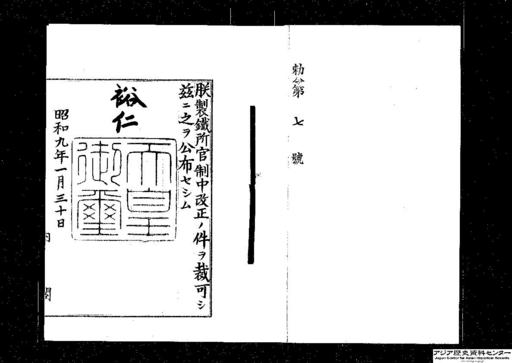 勅令第七號
朕製鐵所官制中改正ノ件ヲ裁可シ
茲ニ之ヲ公布セシム
裕仁
天皇御璽
昭和九年一月三十日
内閣
アジア歴史資料センター
Japan Center for Asian Historical Records